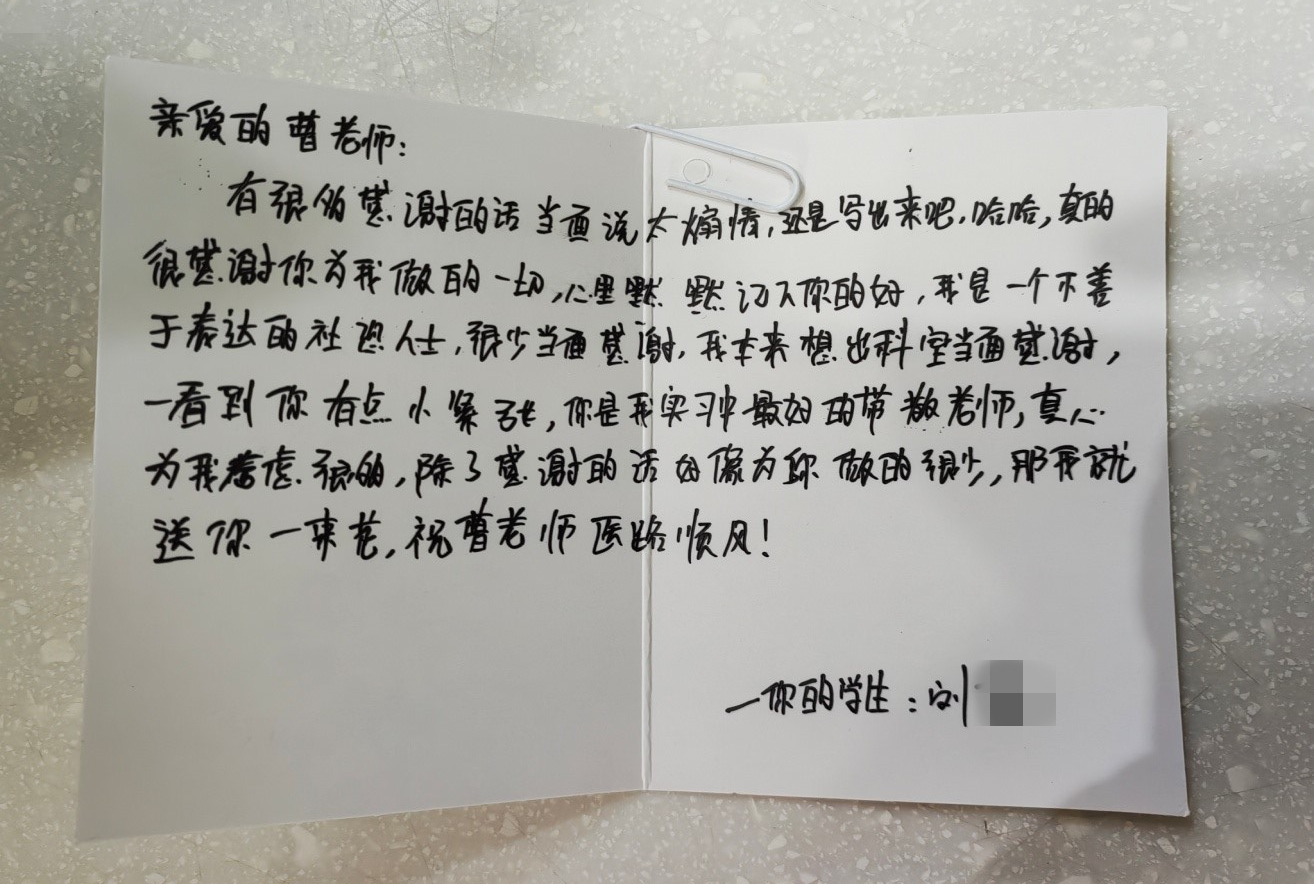 亲爱的曹老师：
有很多感谢的话当面说太煽情，还是写出来吧，哈哈，真的
很感谢你为我做的一切，心里默默记下你的好，我是一个不善
于表达的社恐人士，很少当面感谢，我本来想出科室当面感谢，
一看到你有点小紧张，你是我实习中最好的带教老师，真心
为我考虑很多，除了感谢的话好像为你做的很少，那我就
送你一束花，祝曹老师医路顺风！
—你的学生：刘